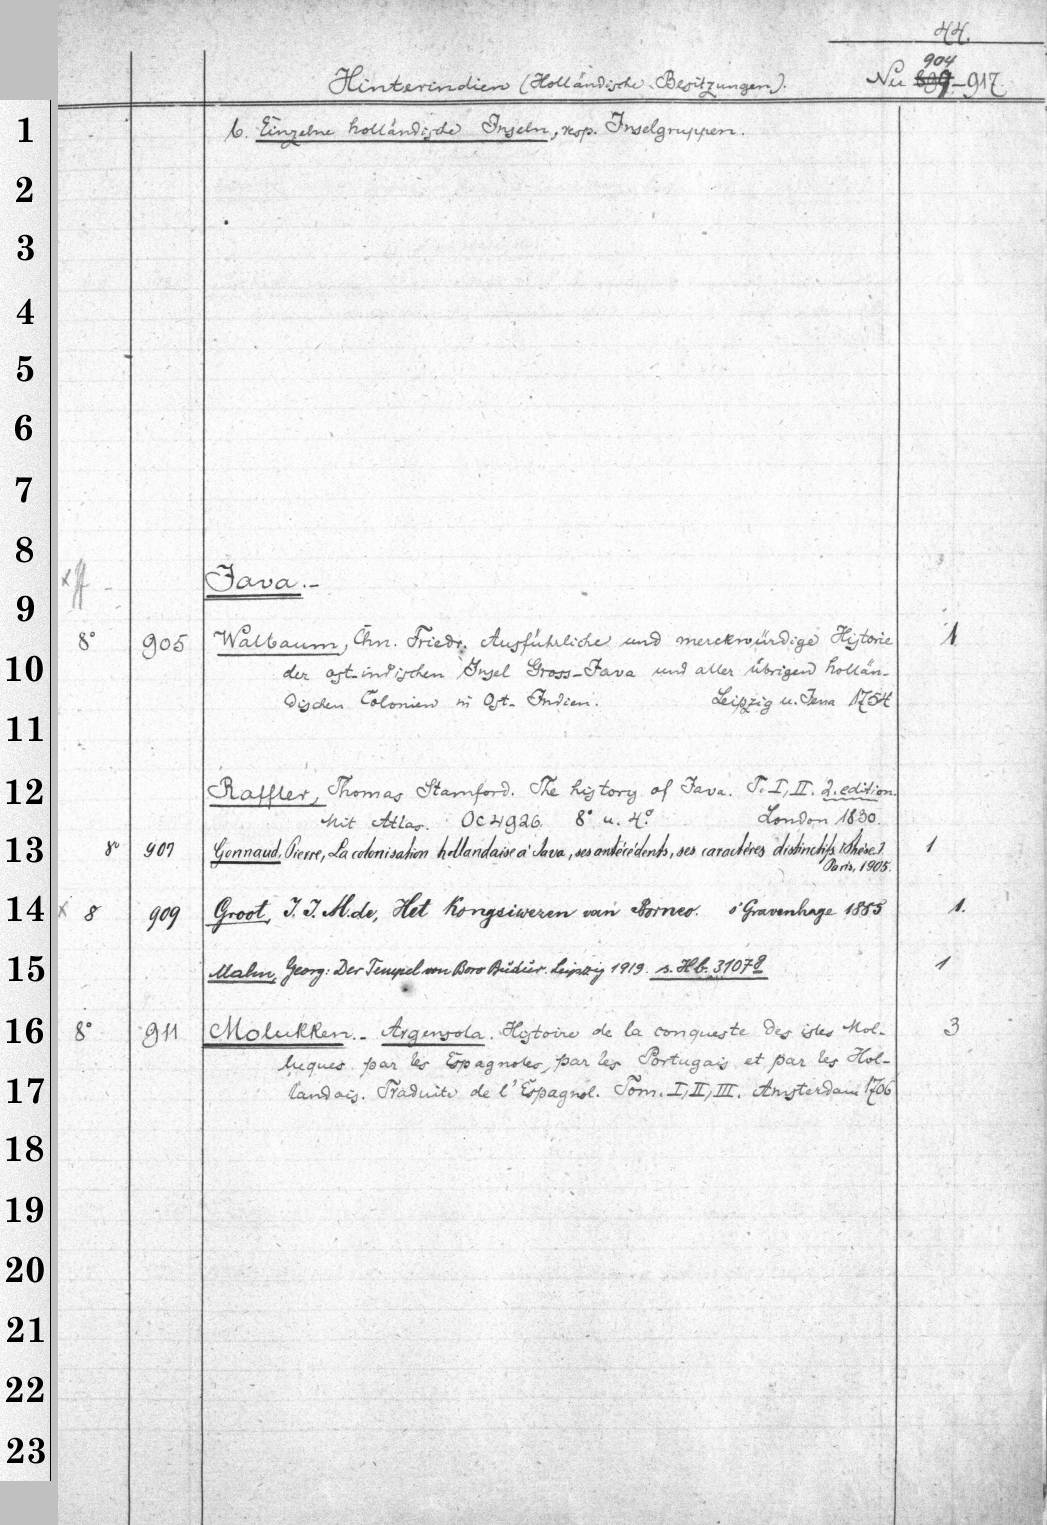 44.
904
Hinterindien (Holländische Besitzungen). Nu 899-917
1 b. Einzelne holländische Inseln, resp. Inselgruppen.
2
3
4
5
6
7
8
Java.-
9
8° 905 Walbaum, Chn. Friedr. Ausführliche und merckwürdige Historie 1
10 der ost-indischen Insel Gross-Java und aller übrigen hollän-
dischen Colonien in Ost-Indien. Leipzig u. Jena 1754
11
12 Raffler, Thomas Stamford. The history of Java. T. I, II. 2. edition.
Mit Atlas. Oc 4926 8° u. 4° London 1830.
13 8° 907 Gonnaud, Pierre, La colonisation hollandaise a' Java, ses antécédents, ses caractères distinctifs (Thèse). 1
Paris, 1905.
14 x 8 909 Groot, J. J. M. de, Het Kongsiwezen van Borneo. s'Gravenhage 1885 1.
15 Mahn, Georg: Der Tempel von Boro Budur. Leipzig 1919. s. Hb. 3107 8 1
16 8° 911 Molukken.- Argensola. Histoire de la conqueste des isles Mol- 3
luques par les Espagnoles, par les Portugais et par les Hol-
17 landais. Traduite de l'Espagnol. Tom. I, II, III. Amsterdam 1706
18
19
20
21
22
23